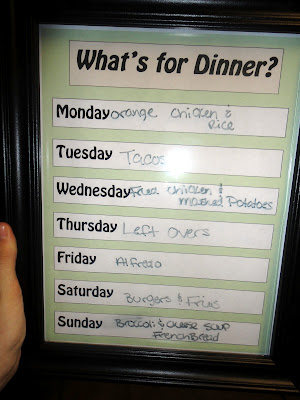 What's for Dinner?
Monday orange chicken &
Rice
Tuesday Tacos
Wednesday Fried chicken &
mashed Potatoes
Thursday Left overs
Friday Alfredo
Saturday Burgers & Fries
Sunday Broccoli & cheese soup
French Bread